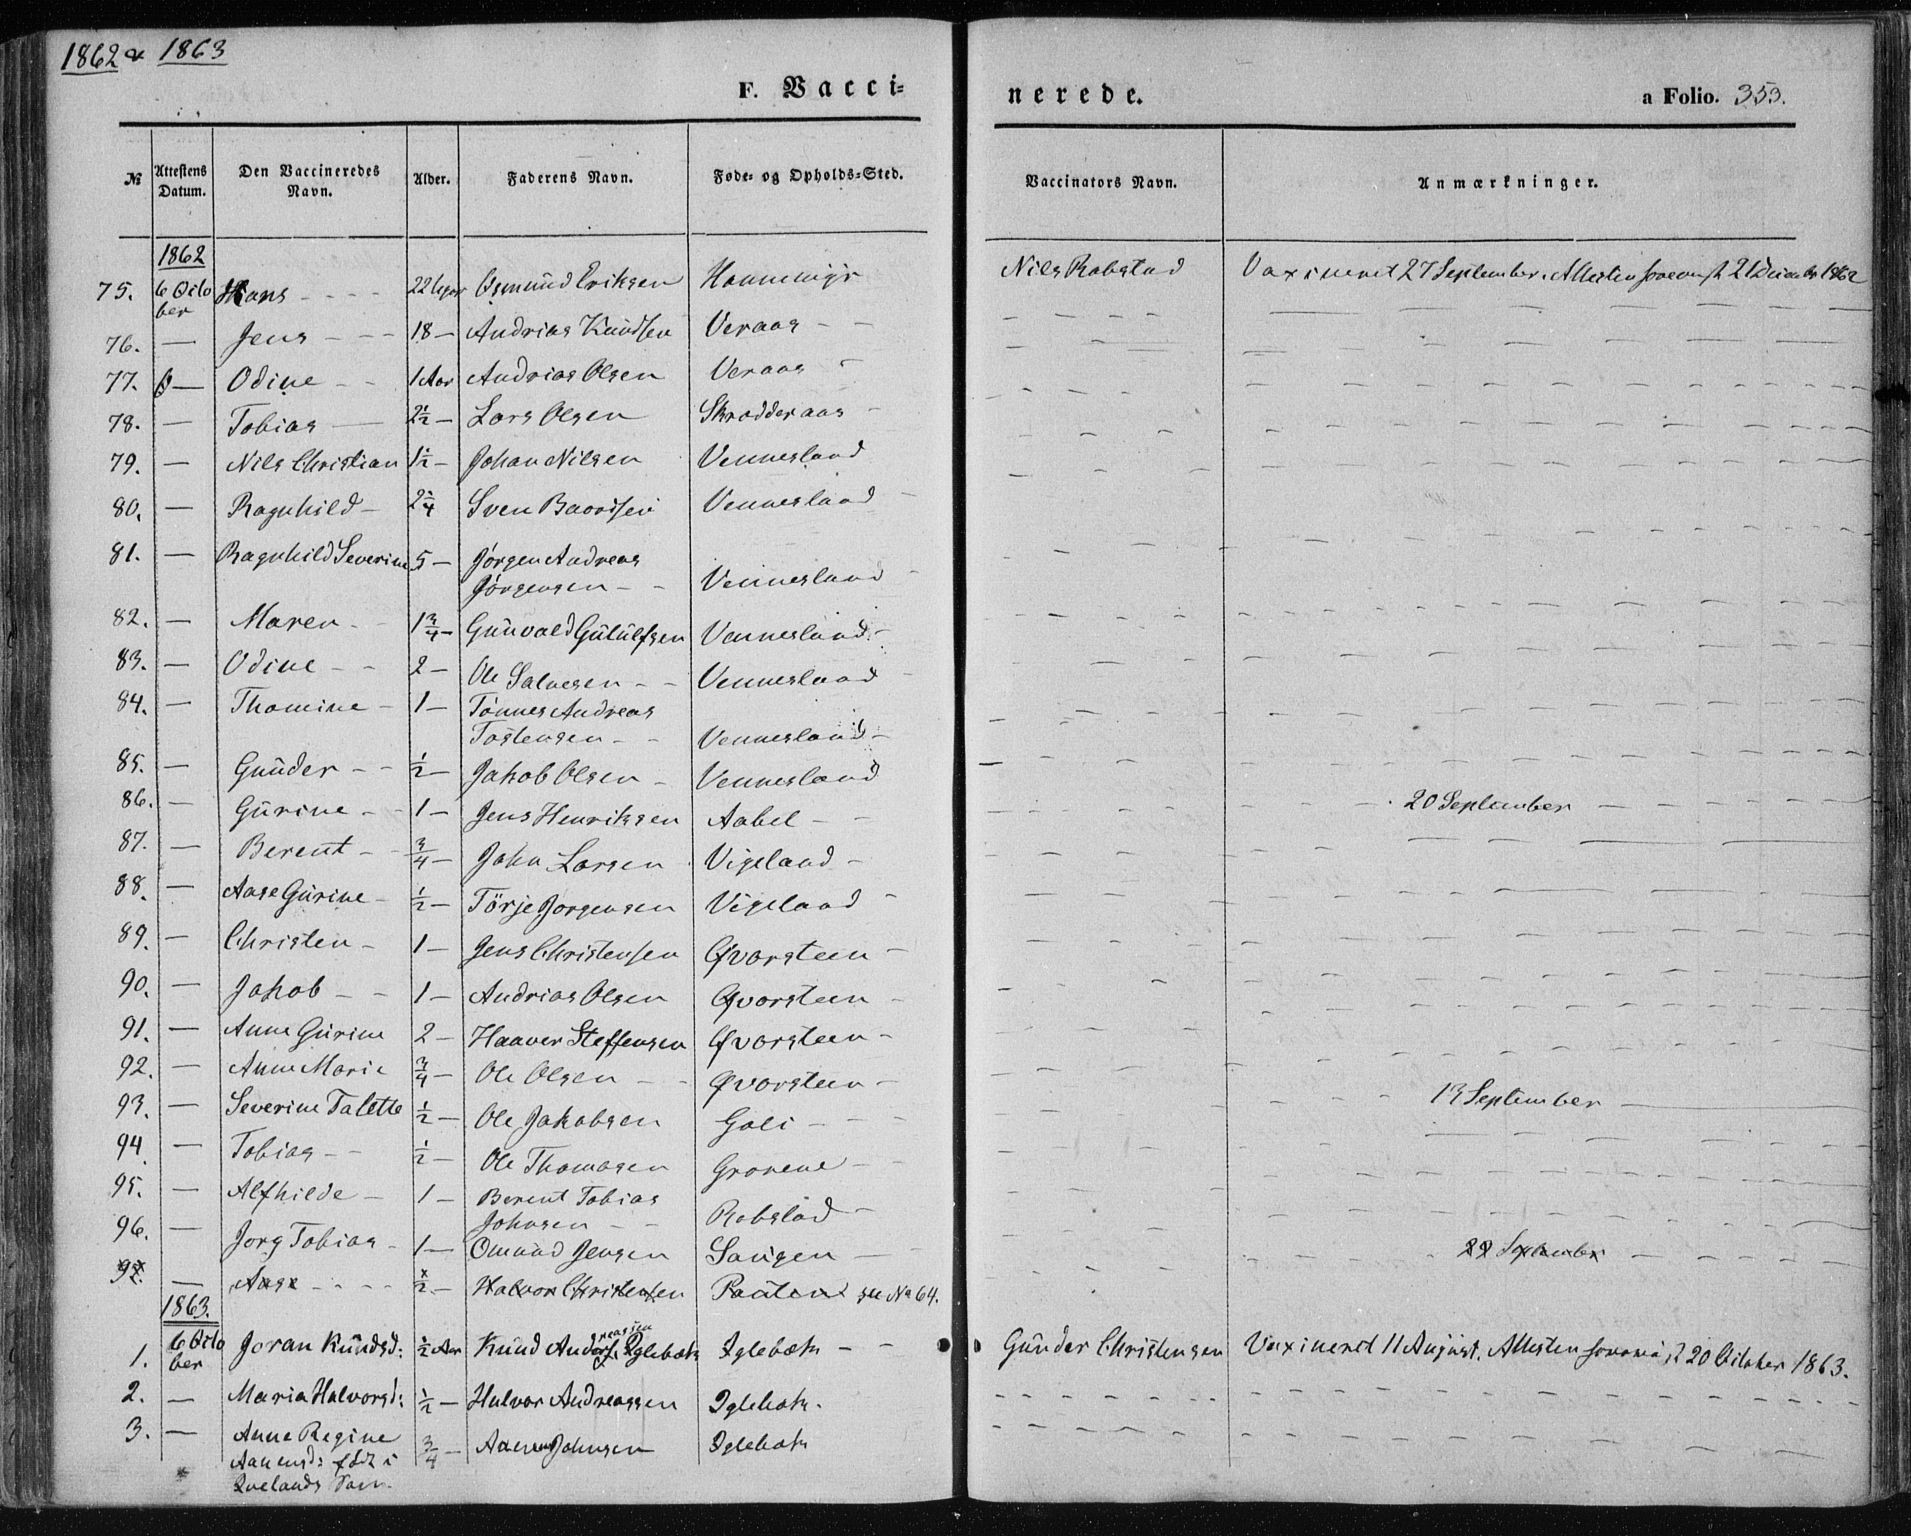 1862 & 1863
F. Vacci=
nerede.
a Folio. 353.
№ Attestens Datum. Den Vaccineredes Navn. Alder. Faderens Navn. Føde- og Opholds-Sted. Vaccinators Navn. Anmærkninger.
1862
75. 6 October Hans - - - - Osmund Eriksen Nils Robstad Vaxineret 27 September. Attesten 21 December 1862
76. — Jens - - - 18 — Andrias Knudsen Veraas - -
77. — Odine - - 1 Aar Andrias Olsen Veraas -
78. — Tobias — 2½ — Lars Olsen Skrædderaas -
79. — Nils Christian 1½ — Johan Nilsen Vennesland
80. — Ragnhild - 2¼ Sven Baardsen Vennesland -
81. — Ragnhild Severine 5 — Jørgen Andreas
Jørgensen - - Vennesland -
82. — Maren - - 1¾ — Gunvald Gutulfsen Vennesland -
83. — Odine - - 2 — Ole Salvesen - - Vennesland -
84. — Thomine - 1 — Tønnes Andreas
Tostensen - - Vennesland -
85. — Gunder - - ½ — Jakob Olsen - Vennesland
86. — Gurine - - 1 — Jens Henriksen Aabel - - 20 September —
87. — Berent - - ¾ — John Larsen Vigeland -
88. — Aase Gurine - ½ — Törje Jorgensen Vigeland -
89. — Christen - 1 — Jens Christensen Qvarsteen -
90. — Jakob - - 1 — Andrias Olsen Qvarsteen -
91. — Anne Gurine 2 — Haaver Steffensen Qvarsteen -
92. — Anne Marie ¾ — Ole Olsen - - Qvarsteen -
93. — Severine Talette ½ — Ole Jakobsen Goli - - - 13 September —
94 — Tobias - - ½ — Ole Thomasen Grovene - -
95. — Alfhilde - 1 — Berent Tobias
Johnsen - - Robstad -
96. — Jorg Tobias - 1 — Omund Jensen Sangen — 22 September —
97. — Aase - - - - ½ — Halvor Christensen se No 64.
1863.
1. 6 October Joran Knudsd: ½ Aar Knud Iglebæk - - Gunder Christensen Vaxineret 11 August. Attesten 20 October 1863.
2. — Maria Halvorsd: ½ — Halvor Andreassen Iglebæk.
3. — Anne Regine ¾ — Johnsen Iglebæk
Aanensd: født i